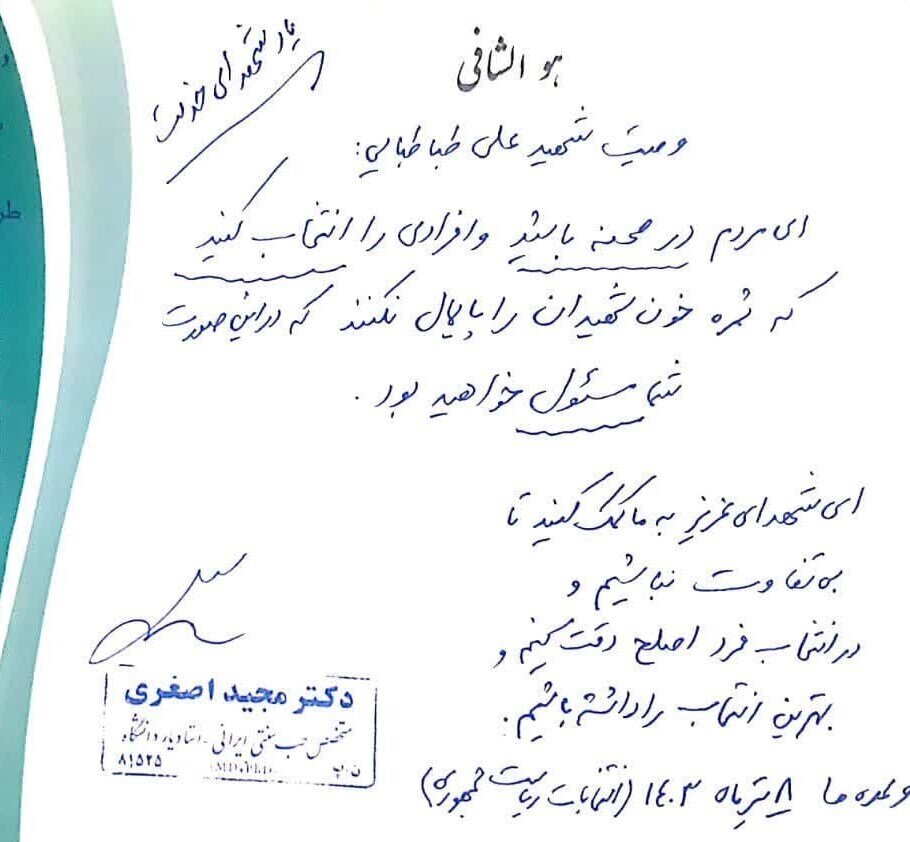 هو الشافی
یاد شهدای خدمت
وصیت شهید علی طباطبایی:
ای مردم در صحنه باشید و افرادی را انتخاب کنید
که ثمره خون شهیدان را پایمال نکنند که در این صورت
شما مسئول خواهید بود.
ای شهدای عزیز به ما کمک کنید تا
بی تفاوت نباشیم و
در انتخاب فرد اصلح دقت کنیم و
بهترین انتخاب را داشته باشیم.
وعده ما ۸ تیر ماه ۱۴۰۳ (انتخابات ریاست جمهوری)
دکتر مجید اصغری
متخصص طب سنتی ایرانی - استادیار دانشگاه
ن.پ (MD.Ph.D) ۸۱۵۲۵